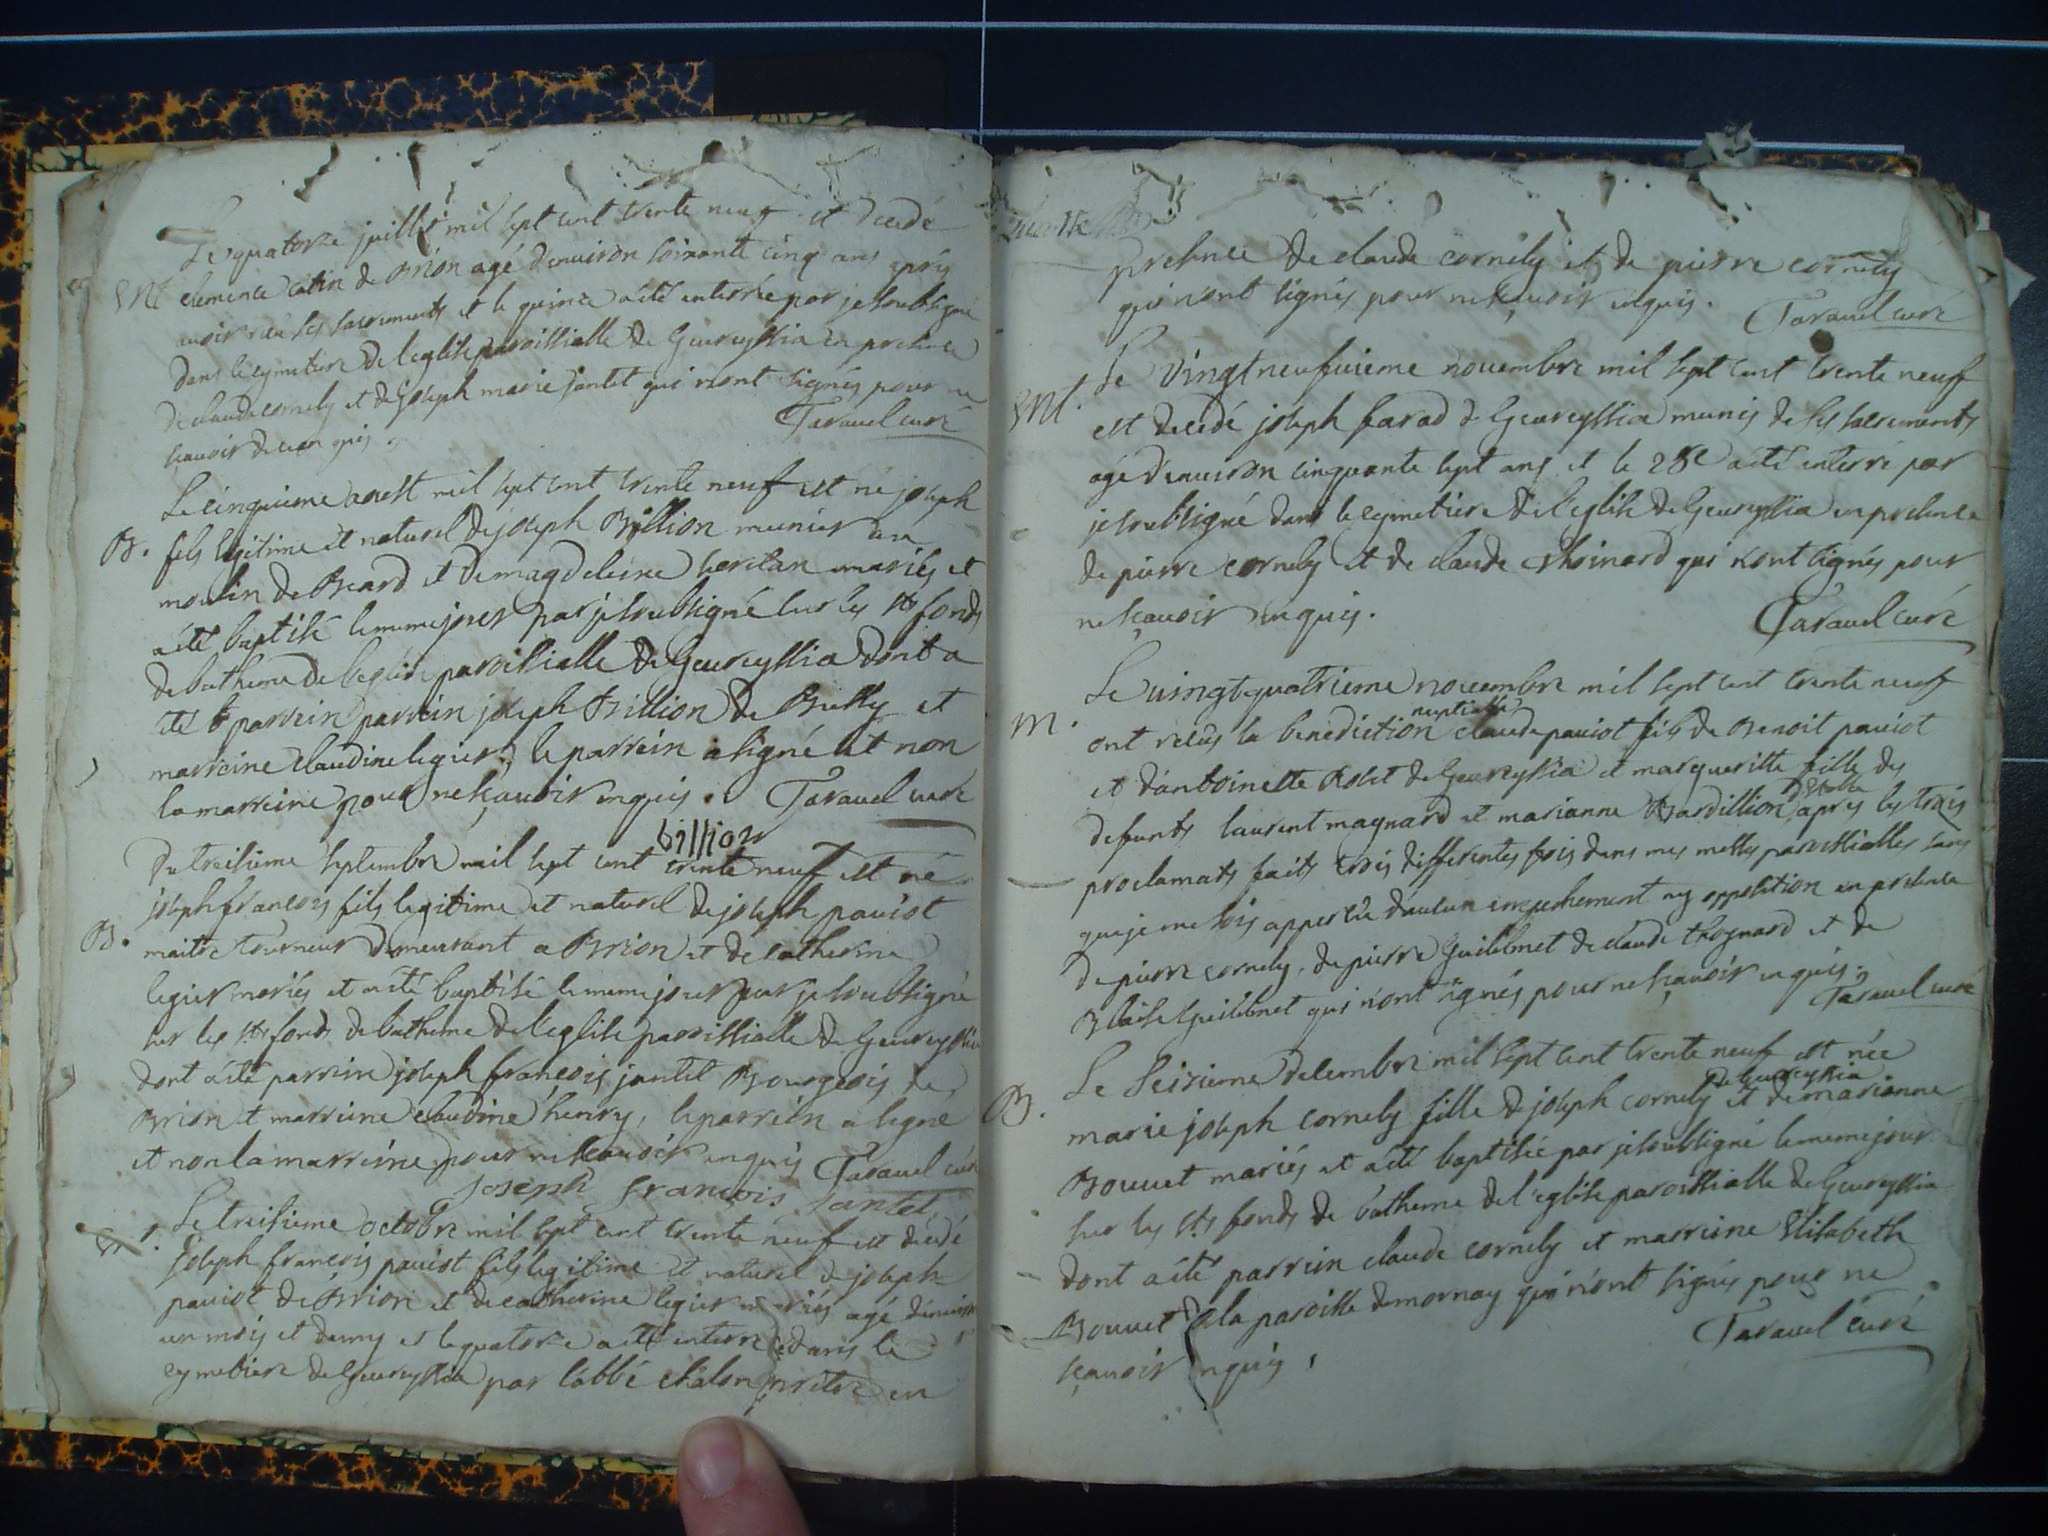 Le quatorze juillet mil sept cent trente neuf est decedé
Ent clemence catin de Brion agé denuiron soixante cinq ans après
auoir recu ses sacrements et le quinze a eté enterrée par je soubsigné
dans le cymetiere de l'eglise paroissialle de Geureyssia en presence
de claude cornely et de joseph marie jantet qui n'ont signés pour ne
scauoir de ce enquis. Tarauel curé
Le cinquieme aoust mil sept cent trente neuf est né joseph
B. fils legitime et naturel de joseph Billion meunier au
moulin de Beard et de magdeleine mariés et
a eté baptisé le meme jour par je soubsigné sur les sts fonds
de batheme de l'eglise paroissialle de Geureyssia dont a
eté parrein parrein joseph Billion de et
marreine claudine legier, le parrein a signé et non
la marreine pour ne scauoir enquis. Tarauel curé
billion
Du treisieme septembre mil sept cent trente neuf est né
joseph francois fils legitime et naturel de joseph pauiot
B. maitre tourneur demeurant a Brion et de catherine
legier mariés et a eté baptisé le meme jour par je soubsigné
sur les sts fonds de batheme de l'eglise paroissialle de Geureyssia
dont a eté parrein joseph francois jantet Bourgeois de
Brion et marreine claudine henry, le parrein a signé
et non la marreine pour ne scauoir enquis Tarauel curé
Joseph francois Jantet
Le treisieme octobre mil sept cent trente neuf est decedé
joseph francois pauiot fils legitime et naturel de joseph
pauiot de Brion et de catherine legier mariés agé denuiron
un mois et demy et le quatorze a eté enterré dans le
cymetiere de Geureyssia par l'abbé chalon pritre en
presence de claude cornely et de pierre cornely
qui n'ont signés pour ne scauoir enquis. Tarauel curé
Le vingt neufuieme nouembre mil sept cent trente neuf
Ent. est decedé joseph farad de Geureyssia munis de ses sacrements
agé denuiron cinquante sept ans et le 28e a eté enterré par
je soubsigné dans le cymetiere de l'eglise de Geureyssia en presence
de pierre cornely et de claude thoinard qui n'ont signés pour
ne scauoir enquis. Tarauel curé
Le uingt quatrieme nouembre mil sept cent trente neuf
nuptialle
M. ont recus la benediction claude pauiot fils de Benoit pauiot
et d'antoinette de Geureyssia et margueritte fille des
defunts laurent magnard et marianne Bardillion apres les trois
proclamats faits trois differentes fois dans mes messes paroissialles sans
que je me sois apperçue d'aucun empechement ny opposition en presence
de pierre cornely, de pierre Guillemet de claude thoynard et de
Blaise Guillemet qui n'ont signés pour ne scauoir enquis. Tarauel curé
Le seizieme decembre mil sept cent trente neuf est née
de Geureyssia
B. marie joseph cornely fille de joseph cornely et de marianne
Bouuet mariés et a eté baptisée par je soubsigné le meme jour
sur les sts fonds de batheme de l'eglise paroissialle de Geureyssia
dont a eté parrein claude cornely et marreine Elisabeth
Bouuet de la paroisse de mornay qui n'ont signés pour ne
scauoir enquis, Tarauel curé